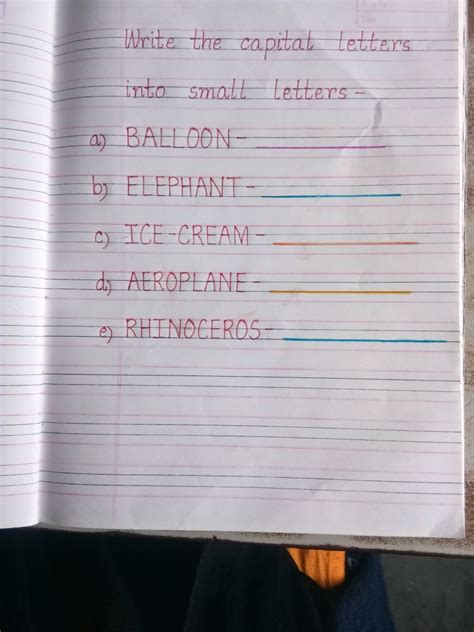 Write the capital letters
into small letters -
a) BALLOON -
b) ELEPHANT -
c) ICE-CREAM -
d) AEROPLANE -
e) RHINOCEROS -